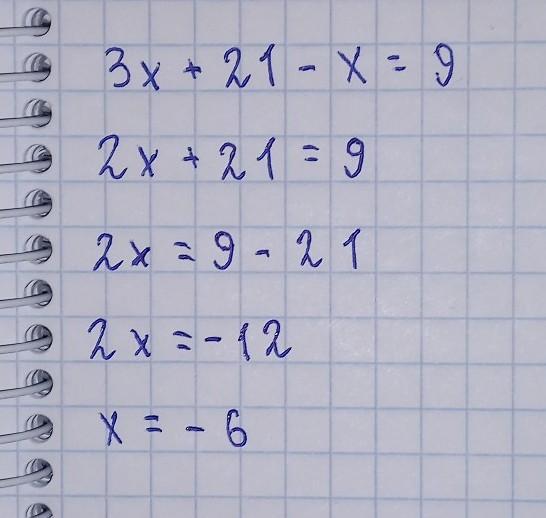 3x + 21 - x = 9
2x + 21 = 9
2x = 9 - 21
2x = -12
x = - 6